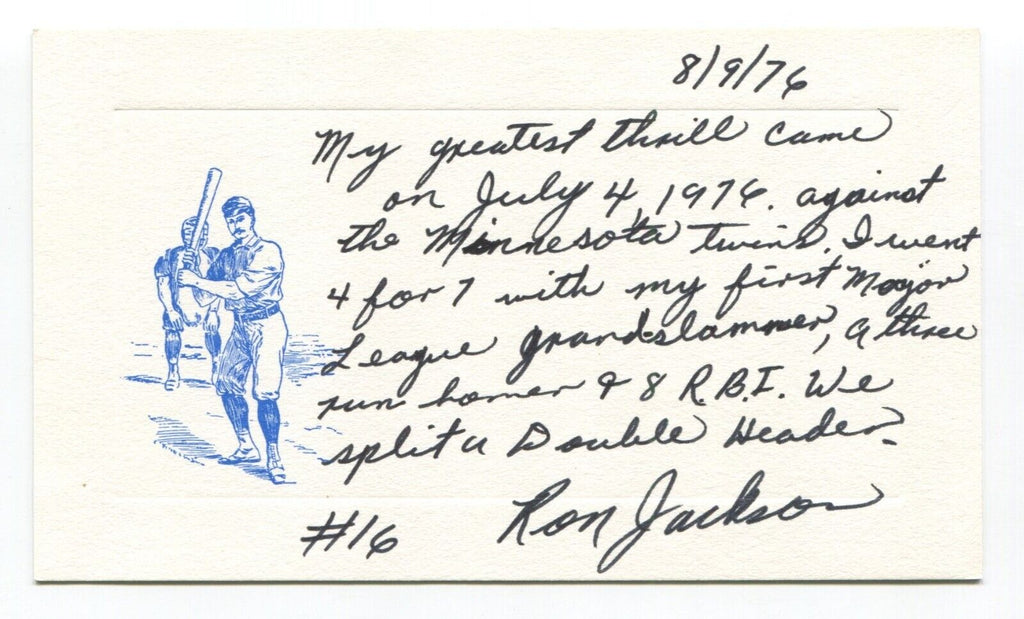 8/9/76
My greatest thrill came
on July 4, 1976. against
the Minnesota Twins. I went
4 for 7 with my first Major
League grand-slammer, a three
run homer & 8 R.B.I. We
split a Double Header.
#16 Ron Jackson